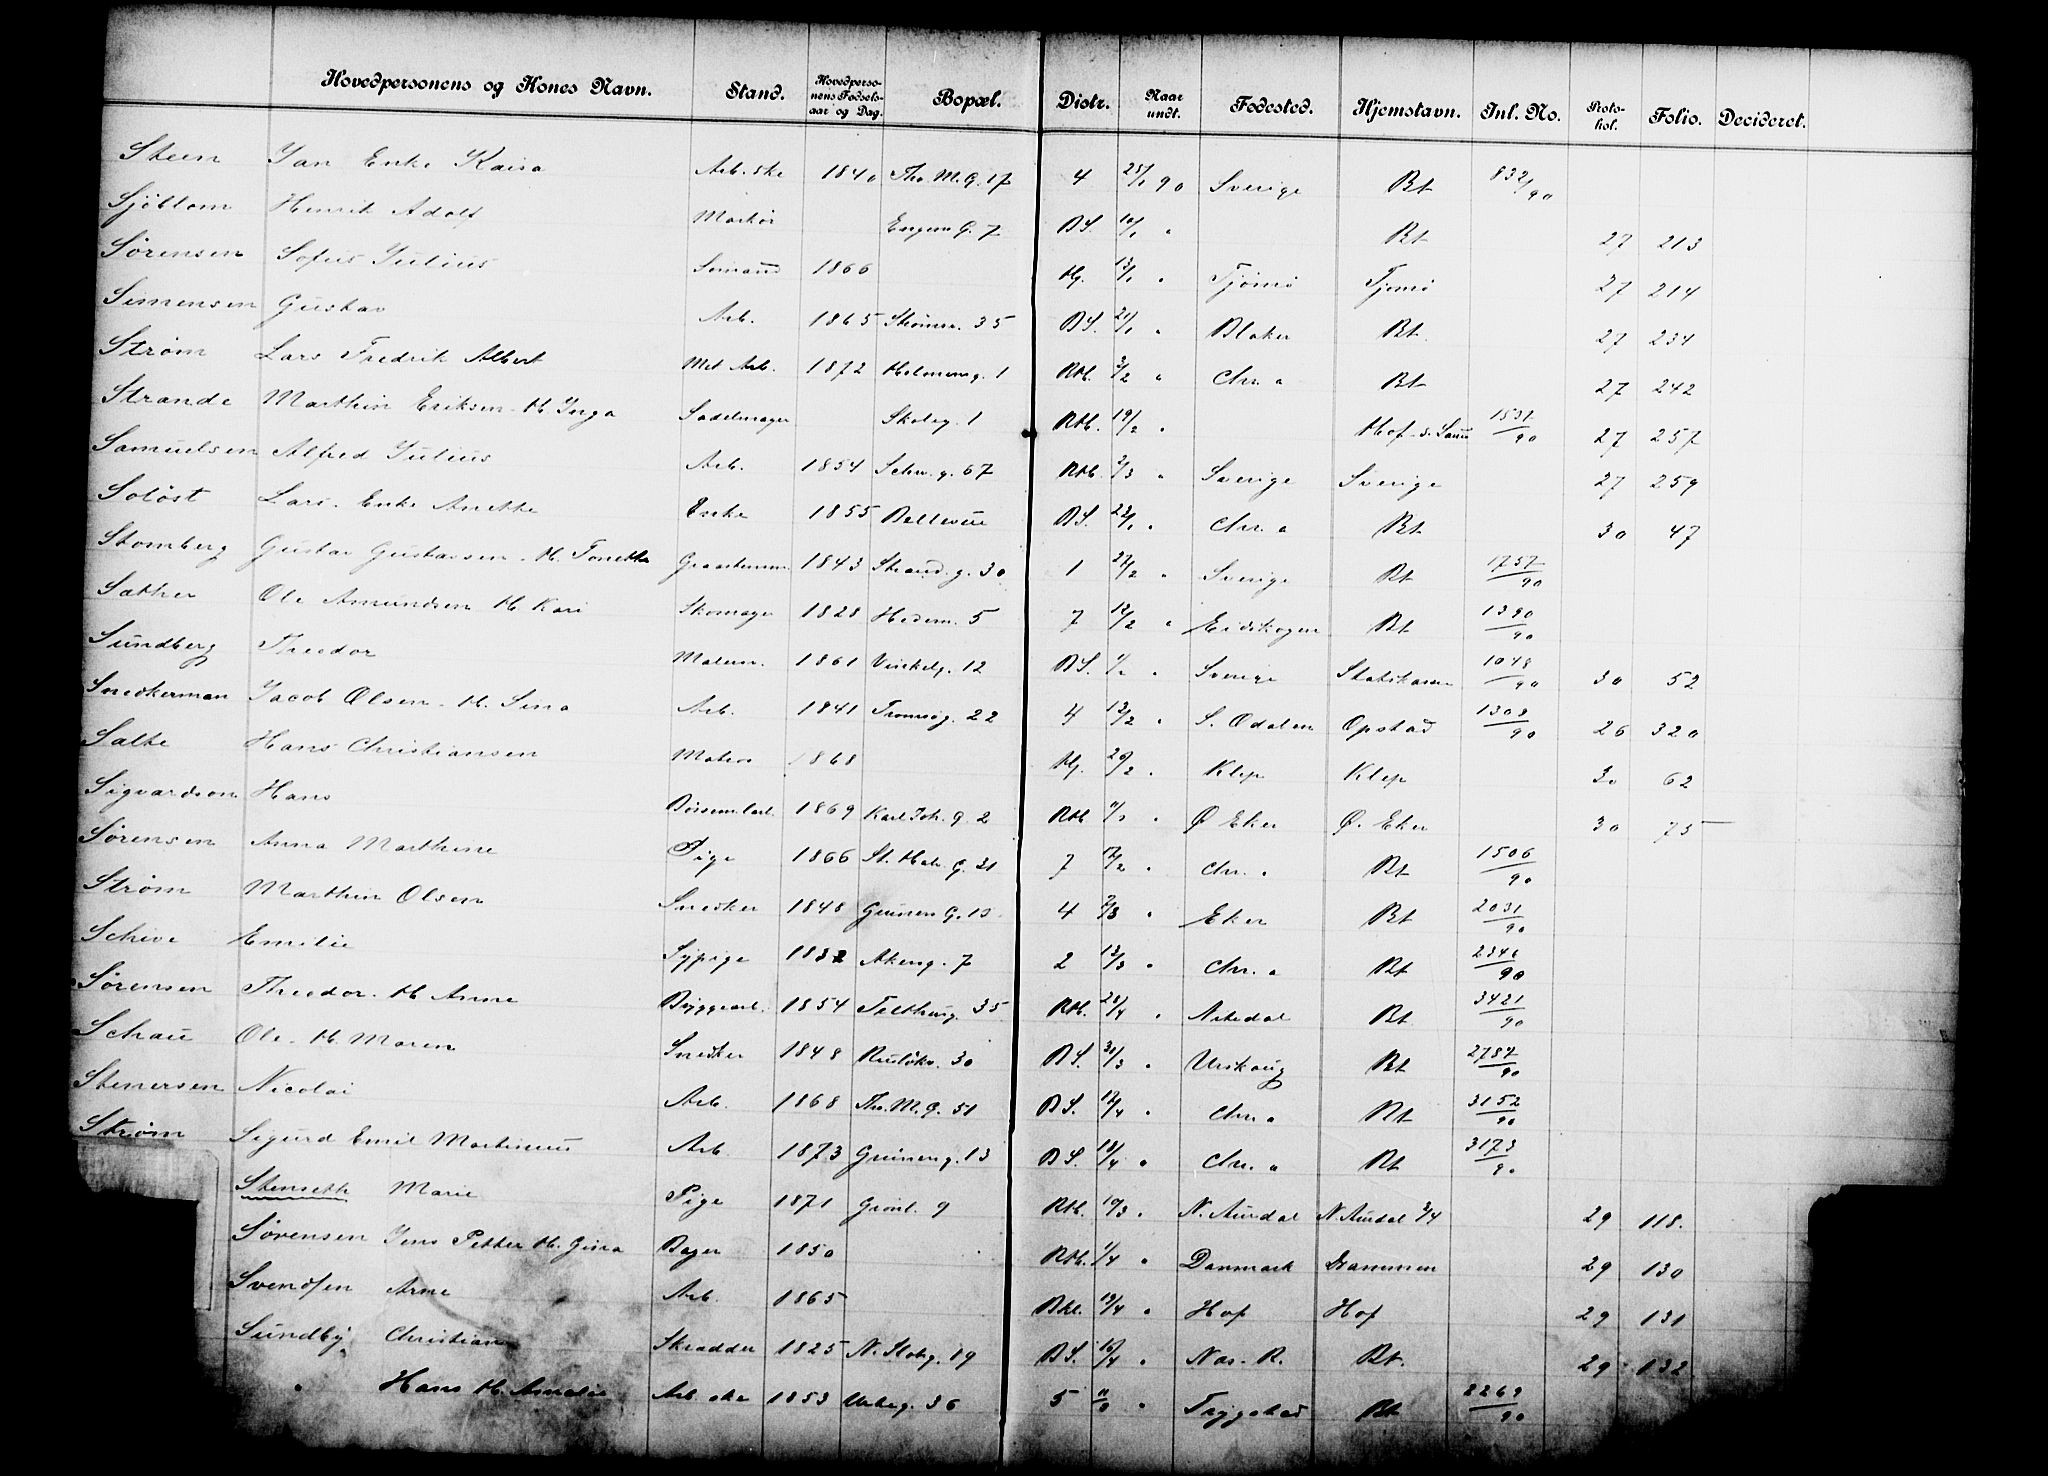 Hovedpersonens og Kones Navn. Stand. Hovedpersonens Fødselsaar og Dag. Bopæl. Distr. Naar undt. Fødested. Hjemstavn. Inl. No. Protokol. Folio. Decideret.
Steen Jan Enke Kaisa Arb. ske 1840 Th. M. G. 17 4 25/1 90 Sverige Bt 832/90
Sjöblom Henrik Adolf Markör G. 7 BS. 10/1 " Bt 27 213
Sørensen Sofus Julius Sømand 1866 Hj. 13/1 " Tjømø Tjømø 27 214
Simensen Gustav Arb. 1865 Strømsv. 35 BS. 21/1 " Blaker Bt. 27 234
Strøm Lars Fredrik Albert Met Arb. 1872 Holmensg. 1 RHb. 3/2 " Chr. a Bt 27 242
Strande Marthin Eriksen H. Inga Sadelmager Skoleg. 1 RHb. 19/2 " Hof s. 1537/90 27 257
Samuelsen Alfred Julius Arb. 1854 Schw. g. 67 RHb. 2/3 " Sverige Sverige 27 259
Soløst Lars. Enke Anethe Enke 1855 Bellevue BS. 23/1 " Chr. a Bt 30 47
Stomberg Gustav Gustavsen H. Tonette 1843 Strand. g. 30 1 27/2 " Sverige Bt 1757/90
Sæther Ole Amundsen H. Kari Skomager 1828 Hedem. 5 7 12/2 " Eidskogen Bt 1390/90
Sundberg Theodor Malersv. 1861 Vinkelg. 12 BS. " Sverige Statskassen 1048/90 30 52
Snedkerman Jacob Olsen H. Sina Arb. 1841 Tromsøg. 22 4 12/2 " S. Odalen Opstad 1309/90 26 320
Salte Hans Christiansen Matros 1868 Hj. 20/2 " Klep Klep 30 62
Sigvardson Hans 1869 Karl Joh. G. 2 RHb " Ø Eker Ø. Eker 30 75
Sørensen Anna Marthine Pige 1866 St. Hal. G. 31 7 " Chr. a Bt 1506/90
Strøm Marthin Olsen Snedker 1848 Grünerg. 4 7/3 " Eker Bt 2031/90
Schive Emilie Sypige 1832 Akersg. 7 2 13/3 " Chr. a Bt 2346/90
Sørensen Theodor. H Anne Bryggearb. 1854 Telthusg. 35 RHb. 28/4 " Nitedal Bt 3421/90
Schau Ole. H. Maren Snedker 1848 Ruseløkv. 30 BS. 31/3 " Urskoug Bt 2787/90
Stenersen Nicolai Arb. 1868 Th. M. G. 51 BS. 12/4 " Chr. a Bt 3152/90
Strøm Sigurd Emil Martinius Arb. 1873 Grünerg. 13 BS. 18/4 " Chr. a Bt 3173/90
Stenseth Marie Pige 1871 Grønl. 9 RHb. 10/3 " N. Aurdal N. Aurdal 3/4 29 118.
Sørensen Jens Petter H. Gina Bager 1850 RHb. 1/4 " Danmark Drammen 29 130
Svendsen Arne Arb. 1865 19/4 " Hof Hof 29 131
Sundby, Christian Skrædder 1825 N. Slotsg. 19 BS. 16/4 " Næs. R. Bt. 29 132
" Hans H. Amalie Arb. ske 1853 Urteg. 36 5 " Trygstad Bt 2269/90